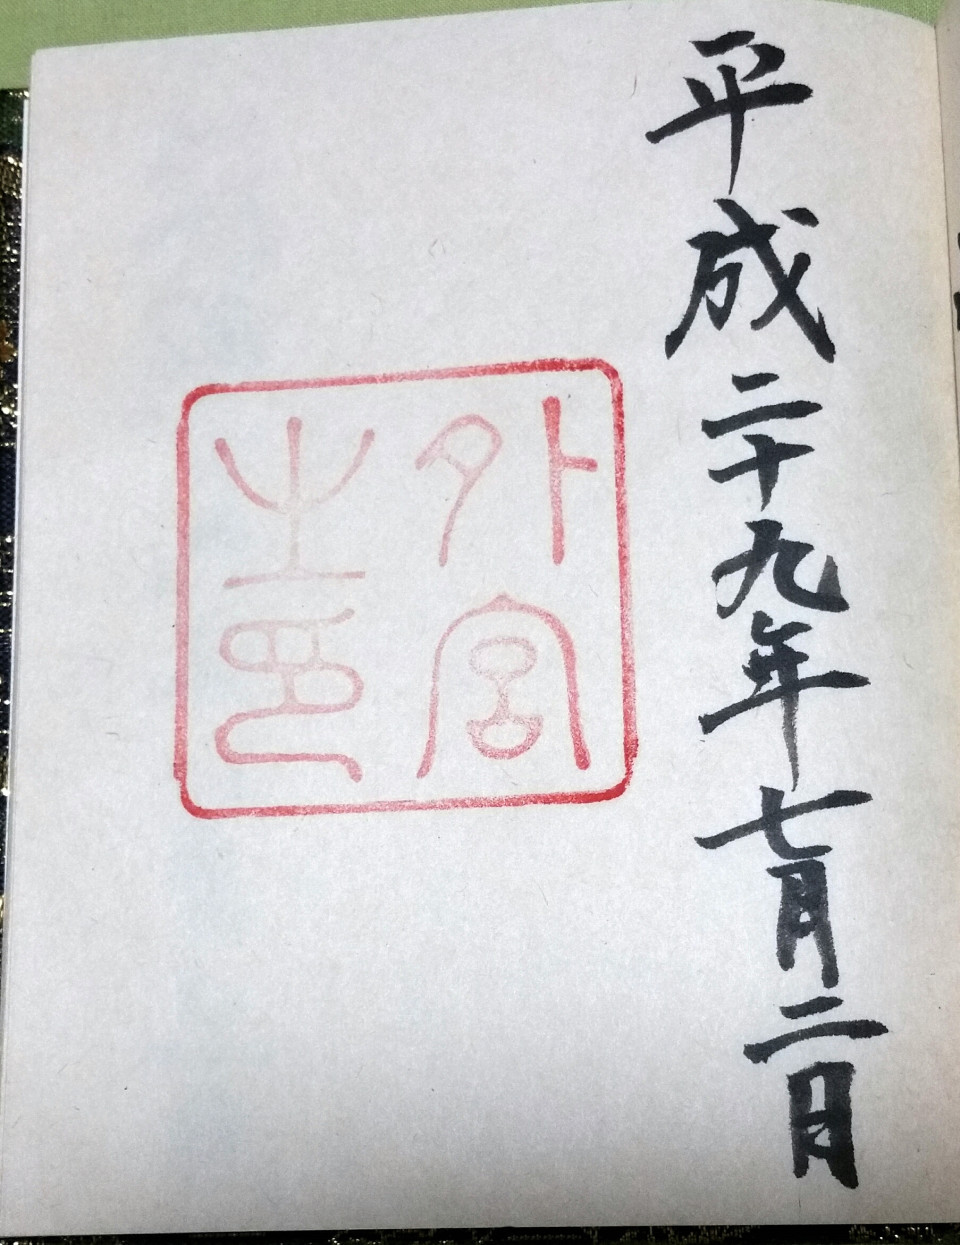 平成二十九年七月二日
外宮
之印